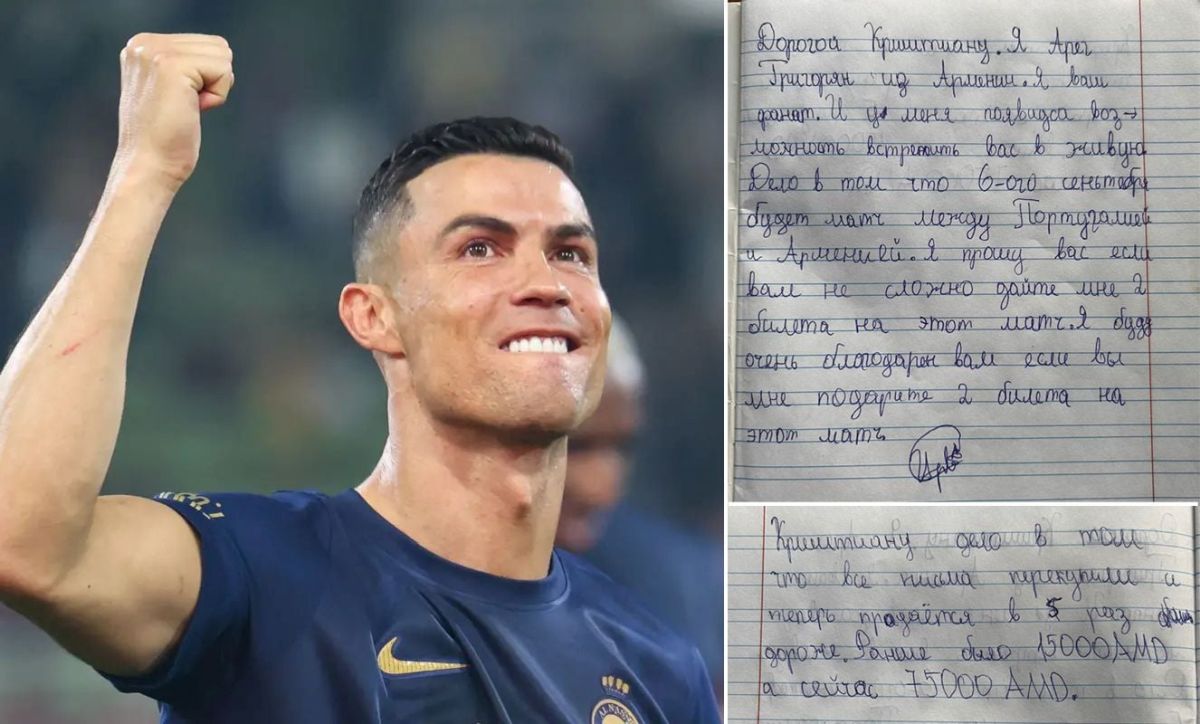 Дорогой Криштиану. Я Арег
Григорян из Армении. Я ваш
фанат. И у меня появидса воз-
можность встретить вас в живую
Дело в том что 6-ого сеньтября
будет матч между Португалией
и Арменией. Я прошу вас если
вам не сложно дайте мне 2
билета на этот матч. Я буду
очень благодарен вам если вы
мне подарите 2 билета на
этот матч
Криштиану дело в том
что все письма перекупили и
теперь продаётся в 5 раз
дороже. Раньше было 15000AMD
а сейчас 75000 AMD.